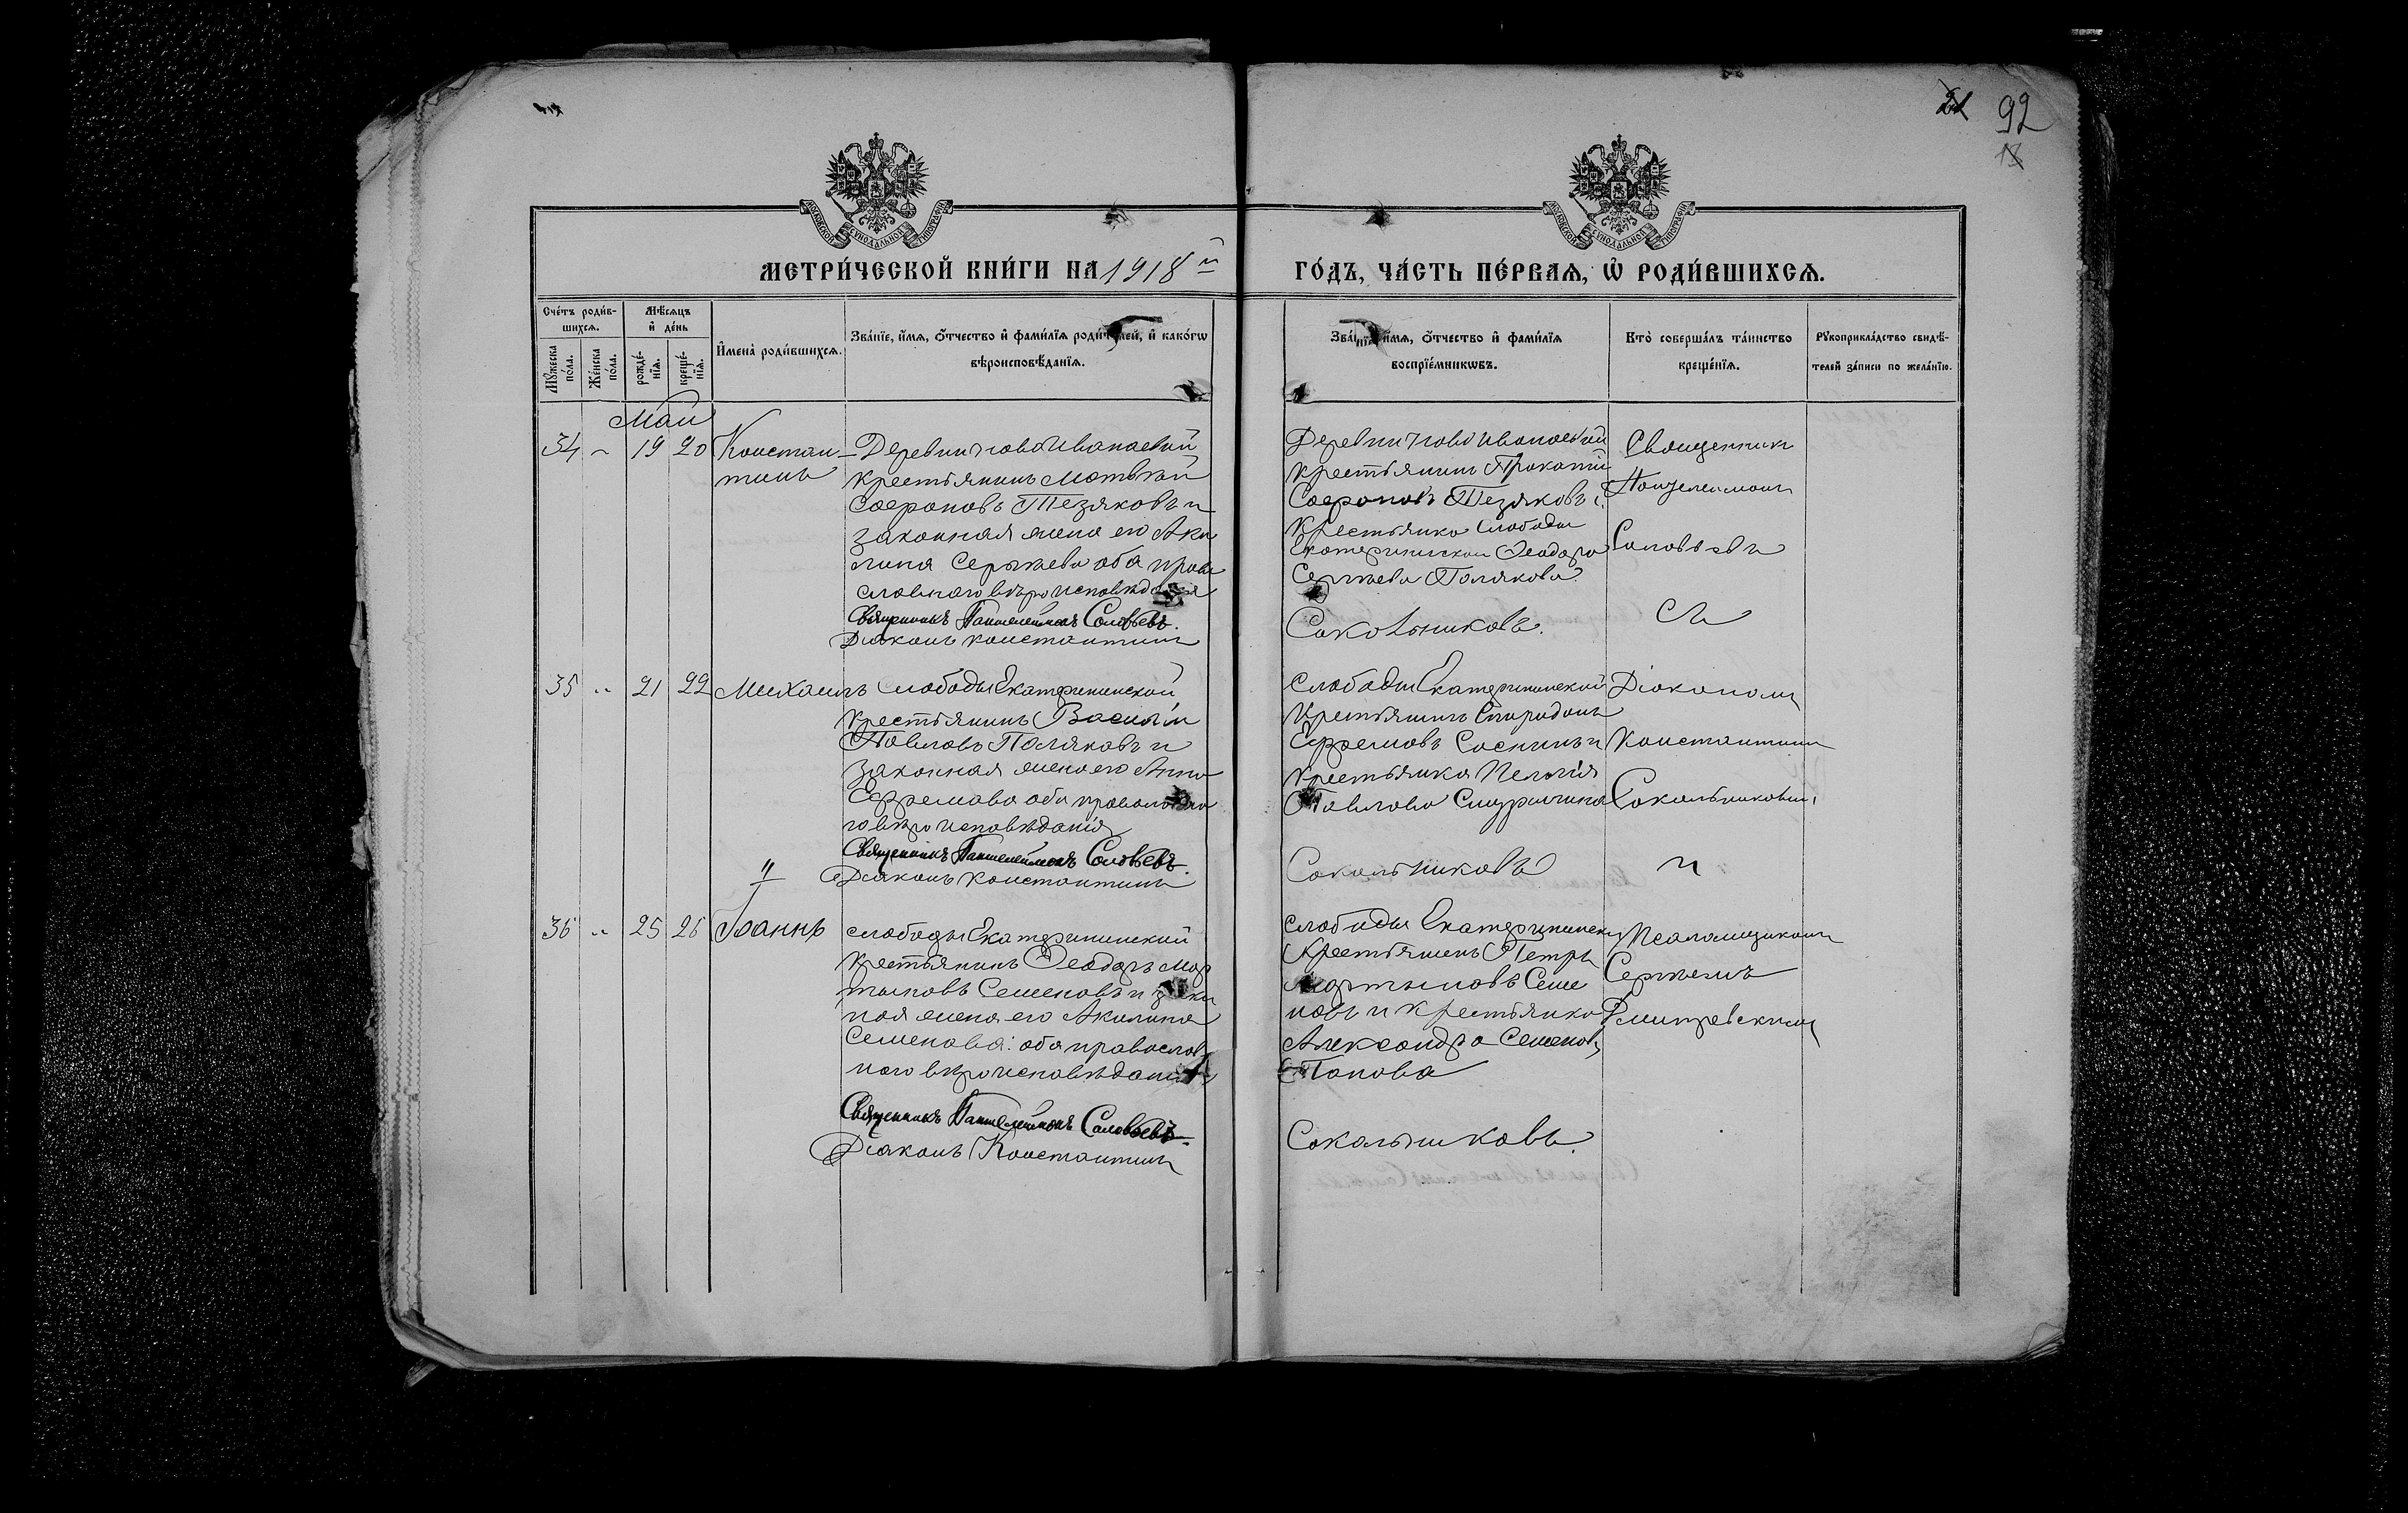 21 92
13
МЕТРИ́ЧЕСКОЙ КНИ́ГИ НА 1918й ГО́ДЪ, ЧА́СТЬ ПЕ́РВАѦ, Ѡ҆ РОДИ́ВШИХСѦ.
Сче́тъ роди́в-
шихсѧ.
Мꙋ́жеска по́ла.
Же́нска по́ла.
Мѣ́сѧцъ
и҆ де́нь
рожде́-
нїѧ.
креще́-
нїѧ.
И҆мена̀ роди́вшихсѧ.
Зва́нїе, и҆́мѧ, ѻ҆́тчество и҆ фами́лїѧ роди́телей, и҆ како́гѡ
вѣроисповѣ́данїѧ.
Зва́нїе, и҆́мѧ, ѻ҆́тчество и҆ фами́лїѧ
воспрїе́мникѡвъ.
Кто̀ соверша́лъ та́инство
креще́нїѧ.
Рꙋкоприкла́дство свидѣ́-
телей за́писи по жела́нїю.
Май
34 " 19 20 Констан-
тинъ
Деревни Ново Ивановкий
крестьянинъ Матвѣй
Софроновъ Тезяковъ и
законная жена его Аки
лина Сергѣева оба право
славнаго вѣроисповѣданія
Священникъ Пантелеимонъ Соловьевъ.
Діаконъ Константинъ
Деревни Ново Ивановкий
крестьянинъ Прокопій
Софроновъ Тезяковъ и
крестьянка слободы
Екатерининской Феодора
Сергѣева Полякова
Сокольниковъ.
Священник
Пантелеимонъ
Соловьевъ
35 " 21 22 Михаилъ
Слободы Екатерининской
крестьянинъ Василій
Павловъ Поляковъ и
законная жена его Анна
Ефремова оба православна
го вѣроисповѣданія
Священникъ Пантелеимонъ Соловьевъ.
Діаконъ Константинъ
Слободы Екатерининской
крестьянинъ Спиридонъ
Ефремовъ Соснинъ и
крестьянка Пелагія
Павлова
Сокольниковъ
Діакономъ
Константином
Сокольниковым
36 " 25 26 Іоаннъ
слободы Екатерининской
крестьянинъ Феодоръ Мар
тыновъ Семеновъ и закон
ная жена его Акилина
Семенова: оба православ
наго вѣроисповѣданія
Священникъ Пантелеимонъ Соловьевъ
Діаконъ Константинъ
слободы Екатерининской
крестьянинъ Петръ
Мартыновъ Семе
новъ и крестьянка
Александра Семенов
Попова
Сокольниковъ.
Псаломщиком
Сергѣемъ
Дмитревским